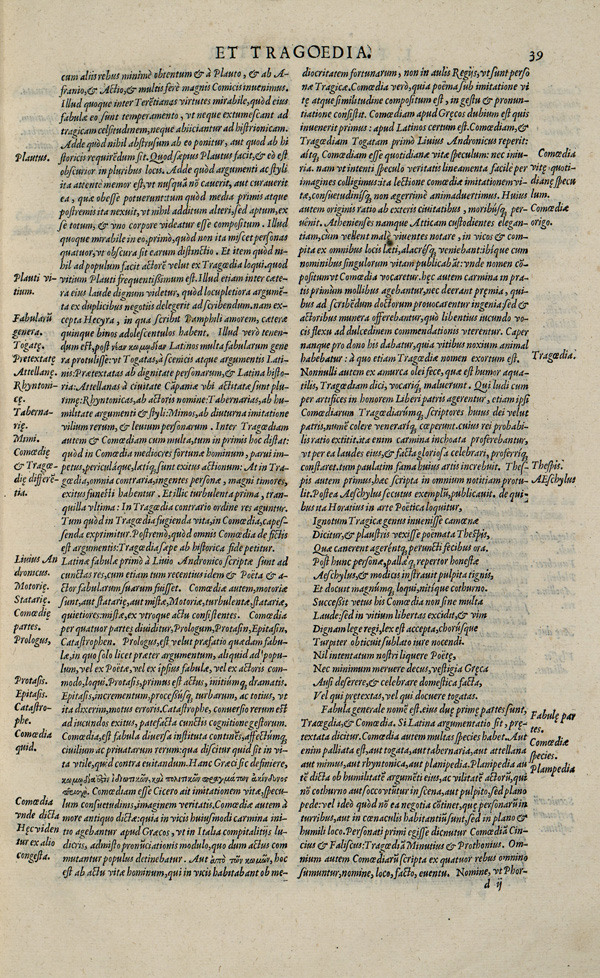 ET TRAGOEDIA.
39
cum aliis rebus minimè obtentum & à Plauto, & ab A-
franio, & Actio, & multis ferè magnis Comicis inuenimus.
Illud quoque inter Terẽtianas virtutes mirabile, quòd eius
fabulæ eo sunt temperamento, vt neque extumescant ad
tragicam celsitudinem, neque abiiciantur ad histrionicam.
Adde quòd nihil abstrusum ab eo ponitur, aut quod ab hi
storicis requirẽdum sit. Quod sæpius Plautus facit, & eò est
obscurior in pluribus locis. Adde quòd argumenti ac styli
ita attentè memor est, vt nusquã nõ cauerit, aut curauerit
ea, quæ obesse potuerunt: tum quòd media primis atque
postremis ita nexuit, vt nihil additum alteri, sed aptum, ex
se totum, & vno corpore videatur esse compositum. Illud
quoque mirabile in eo, primò, quòd non ita miscet personas
quatuor, vt obscura sit earum distinctio. Et item quòd ni-
hil ad populum facit actorẽ velut ex Tragœdia loqui, quod
vitium Plauti frequentissimum est. Illud etiam inter cæte-
ra eius laude dignum videtur, quòd locupletiora argumẽ-
ta ex duplicibus negotiis delegerit ad scribendum. nam ex-
cepta Hecyra, in qua scribit Pamphili amorem, cæteræ
quinque binos adolescentulos habent. Illud verò tenen-
dum est, post νέαν κωμῳδίαν Latinos multa fabularum gene
ra protulisse: vt Togatas, à scenicis atque argumentis Lati-
nis: Prætextatas ab dignitate personarum, & Latina histo-
ria: Atellanas à ciuitate Cãpaniæ vbi actitatæ sunt plu-
rimę: Rhyntonicas, ab actoris nomine: Tabernarias, ab hu-
militate argumenti & styli: Mimos, ab diuturna imitatione
vilium rerum, & leuium personarum. Inter Tragœdiam
autem & Comœdiam cum multa, tum in primis hoc distat:
quòd in Comœdia mediocres fortunæ hominum, parui im-
petus, pericula, lætiq, sunt exitus actionum: At in Tra-
gœdia, omnia contraria, ingentes personæ, magni timores,
exitus funesti habentur. Et illic turbulenta prima, tran-
quilla vltima: In Tragœdia contrario ordine res aguntur.
Tum quòd in Tragœdia fugienda vita, in Comœdia, capes-
senda exprimitur. Postremò, quòd omnis Comœdia de fictis
est argumentis: Tragœdia sæpe ab historica fide petitur.
Latinæ fabulæ primò à Liuio Andronico scriptæ sunt ad
cunctas res, cum etiam tum recentius idem & Poëta & a-
ctor fabularum suarum fuisset. Comœdiæ autem, motoriæ
sunt, aut statariæ, aut mistæ, Motoriæ, turbulentæ, statariæ,
quietiores: mistæ, ex vtroque actu consistentes. Comœdia
per quatuor partes diuiditur, Prologum, Protasin, Epitasin,
Catastrophen. Prologus, est velut præfatio quædam fabu-
læ, in quo solo licet præter argumentum, aliquid ad popu-
lum, vel ex Poëtæ, vel ex ipsius fabulæ, vel ex actoris com-
modo, loqui. Protasis, primus est actus, initiumq, dramatis.
Epitasis, incrementum, processusq, turbarum, ac totius, vt
ita dixerim, motus erroris. Catastrophe, conuersio rerum est
ad iucundos exitus, patefacta cunctis cognitione gestorum.
Comœdia, est fabula diuersa instituta continẽs, affectũmq,
ciuilium ac priuatarum rerum: qua discitur quid sit in vi-
ta vtile, quid contra euitandum. Hanc Græci sic definiere,
Comœdiam esse Cicero ait imitationem vitæ, specu-
lum consuetudinis, imaginem veritatis. Comœdiæ autem à
more antiquo dictæ: quia in vicis huiusmodi carmina ini-
tio agebantur apud Græcos, vt in Italia compitalitijs lu-
dicris, admisto pronũciationis modulo, quo dum actus com
mutantur populus detinebatur. Aut ἀπὸ τῶν κωμῶν, hoc
est ab actu vitæ hominum, qui in vicis habitabant ob me-
Plautus.
Plauti vi-
tium.
Fabularũ
genera.
Togatę.
Prętextatę
Attellanę.
Rhyntoni-
cę.
Taberna-
rię.
Mimi.
Comœdię
& Tragœ-
dię differẽ-
tia.
Liuius An
dronicus.
Motorię.
Statarię.
Comœdię
partes.
Prologus,
Protasis.
Epitasis.
Catastro-
phe.
Comœdia
quid.
Comœdia
vnde dicta
Hęc viden
tur ex alio
congesta.
diocritatem fortunarum, non in aulis Regijs, vt sunt perso
næ Tragicæ. Comœdia verò, quia poëma sub imitatione vi
tę atque similitudine compositum est, in gestu & pronun-
tiatione consistit. Comœdiam apud Gręcos dubium est quis
inuenerit primus: apud Latinos certum est. Comœdiam, &
Tragœdiam Togatam primò Liuius Andronicus reperit:
aitq, Comœdiam esse quotidianæ vitæ speculum: nec iniu-
ria. nam vt intenti speculo veritatis lineamenta facilè per
imagines colligimus: ita lectione comœdiæ imitationem vi-
tæ, consuetudinisq, non ægerrimè animaduertimus. Huius
autem originis ratio ab exteris ciuitatibus, moribusq, per-
uẽnit. Athenienses namque Atticam custodientes elegan-
tiam, cum vellent malè viuentes notare, in vicos & com-
pita ex omnibus locis læti, alacresq, veniebant: ibique cum
nominibus singulorum vitam publicabãt: vnde nomen cõ-
positum vt Comœdia vocaretur. hęc autem carmina in pra-
tis primùm mollibus agebantur, nec deerant pręmia, qui-
bus ad scribẽdum doctorum prouocarentur ingenia: sed &
actoribus munera offerebantur, quò libentius iucundo vo-
cis flexu ad dulcedinem commendationis vterentur. Caper
nanque pro dono his dabatur, quia vitibus noxium animal
habebatur: à quo etiam Tragœdiæ nomen exortum est.
Nonnulli autem ex amurca olei fece, quæ est humor aqua-
tilis, Tragœdiam dici, vocariq, maluerunt. Qui ludi cum
per artifices in honorem Liberi patris agerentur, etiam ipsi
Comœdiarum Tragœdiarũmq, scriptores huius dei velut
patris, numẽ colere venerariq, cœperunt. cuius rei probabi-
lis ratio extitit. ita enim carmina inchoata proferebantur,
vt per ea laudes eius, & facta gloriosa celebrari, proferriq,
constaret. tum paulatim fama huius artis increbuit. Thes-
pis autem primus, hæc scripta in omnium notitiam protu-
lit. Postea Aeschylus secutus exemplũ, publicauit. de qui-
bus ita Horatius in arte Poëtica loquitur,
Ignotum Tragicæ genus inuenisse camœnæ
Dicitur, & plaustris vexisse poëmata Thespis,
Quæ canerent agerẽntq, peruncti fæcibus ora.
Post hunc personæ, pallæq, repertor honestæ
Aeschylus, & modicis instrauit pulpita tignis,
Et docuit magnũmq, loqui, nitique cothurno.
Successit vetus his Comœdia non sine multa
Laude: sed in vitium libertas excidit, & vim
Dignam lege regi, lex est accepta, chorusque
Turpiter obticuit sublato iure nocendi.
Nil intentatum nostri liquere Poëtæ,
Nec minimum meruere decus, vestigia Græca
Ausi deserere, & celebrare domestica facta,
Vel qui prætextas, vel qui docuere togatas.
Fabula generale nomẽ est. eius duę primę partes sunt,
Tragœdia, & Comœdia. Si Latina argumentatio sit, præ-
textata dicitur. Comœdia autem multas species habet. Aut
enim palliata est, aut togata, aut tabernaria, aut attellana
aut mimus, aut rhyntonica, aut planipedia. Planipedia au
tẽ dicta ob humilitatẽ argumẽti eius, ac vilitatẽ actorũ, qui
nõ cothurno aut socco vtũtur in scena, aut pulpito, sed plano
pede: vel ideò quòd nõ ea negotia cõtinet, quę personarũ in
turribus, aut in cœnaculis habitantiũ sunt, sed in plano &
humili loco. Personati primi egisse dicuntur Comœdiã Cin-
cius & Faliscus: Tragœdiã Minutius & Prothonius. Om-
nium autem Comœdiarũ scripta ex quatuor rebus omnino
sumuntur, nomine, loco, facto, euentu. Nomine, vt Phor-
d ij
Comœdia
vitę quoti-
dianę specu
lum.
Comœdiæ
origo.
Tragœdia.
Thespis.
AEschylus
Fabulę par
tes.
Comœdiæ
species.
Plampedia